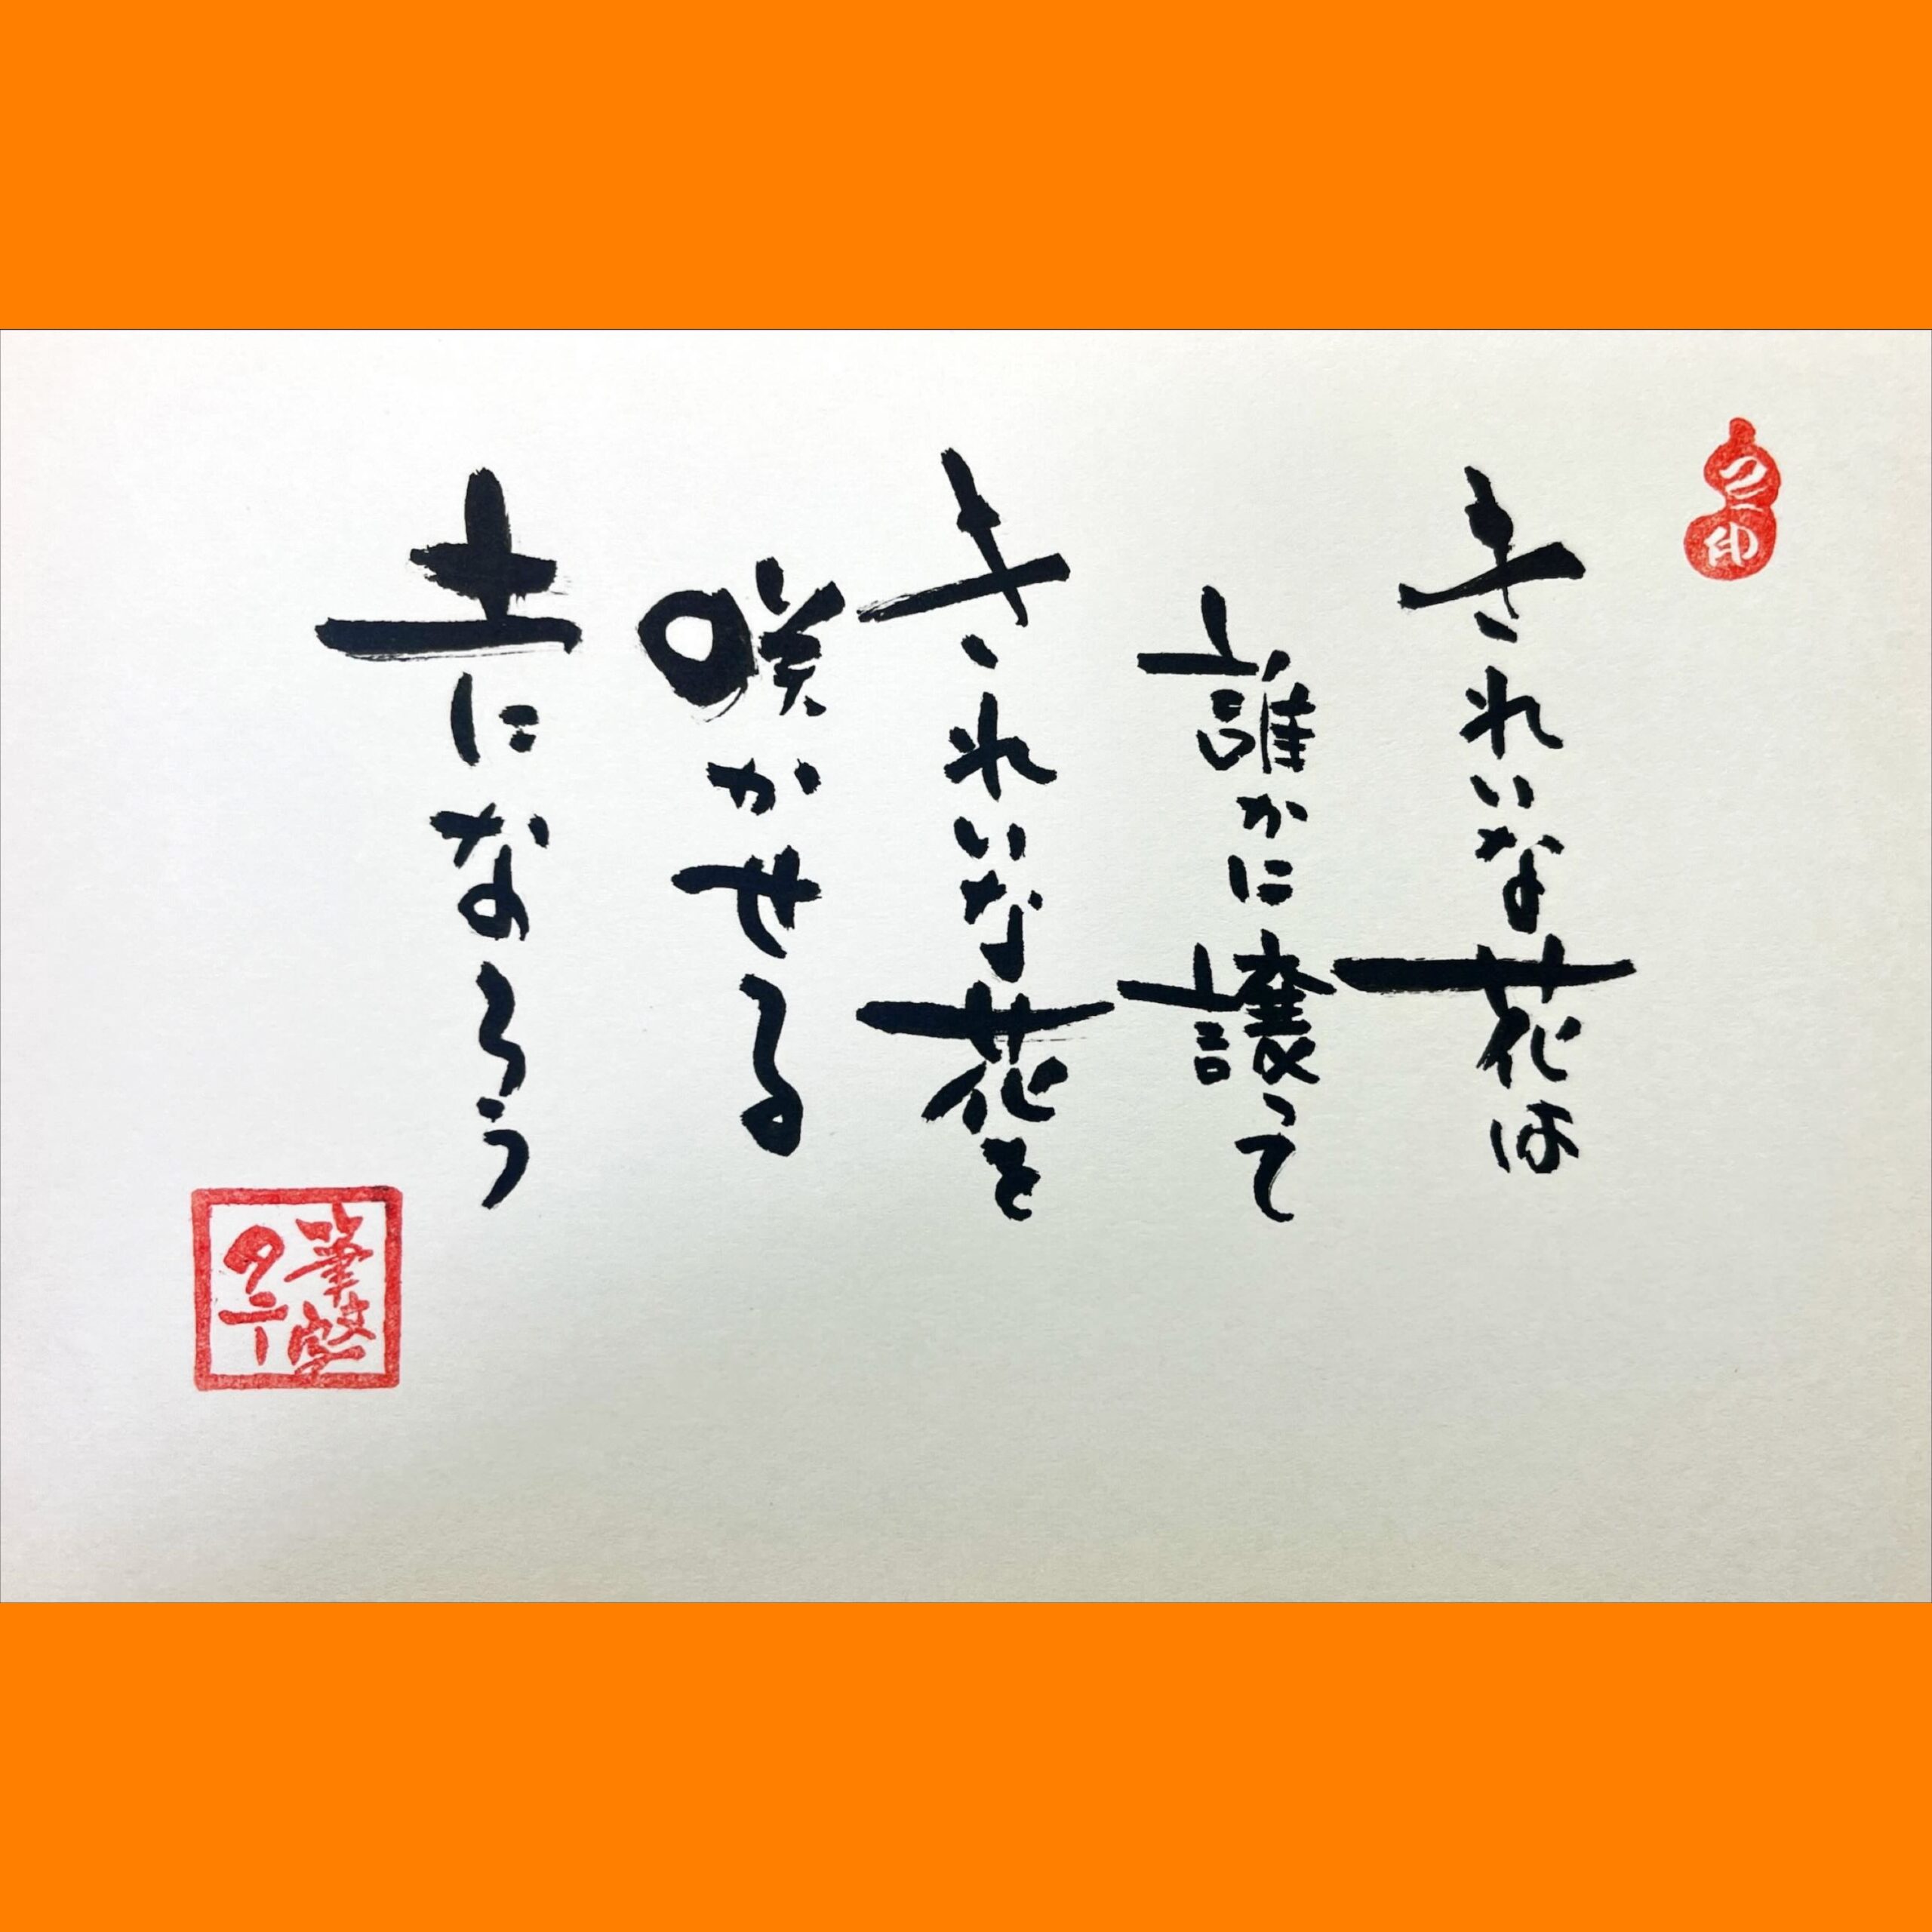 きれいな花は
誰かに譲って
きれいな花を
咲かせる
土になろう
筆文字